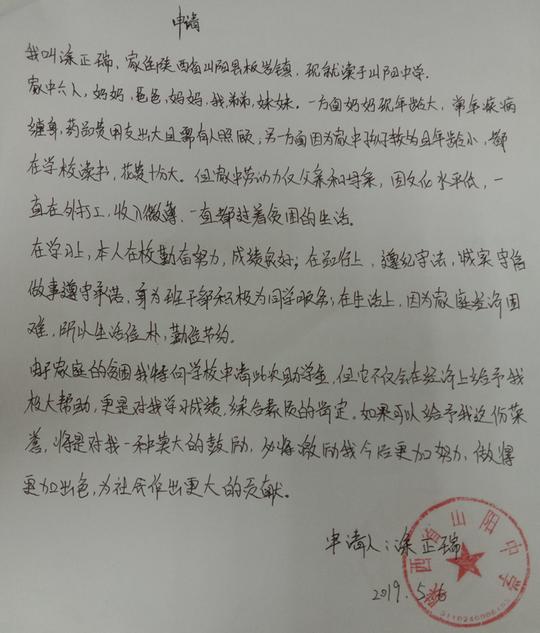 申请
我叫涂正瑞，家住陕西省山阳县板岩镇，现就读于山阳中学。
家中六人，奶奶，爸爸，妈妈，我，弟弟，妹妹。一方面奶奶现年龄大，常年疾病
缠身，药品费用支出大且需有人照顾，另一方面因为家中孩子较多且年龄小，都
在学校读书，花费十分大。但家中劳动力仅父亲和母亲，因文化水平低，一
直在外打工，收入微薄，一直都过着贫困的生活。
在学习上，本人在校勤奋努力，成绩良好；在品行上，遵纪守法，诚实守信
做事遵守承诺，身为班干部积极为同学服务；在生活上，因为家庭经济困
难，所以生活俭朴，勤俭节约。
由于家庭的贫困我特向学校申请此次助学金，但它不仅会在经济上给予我
极大帮助，更是对我学习成绩，综合素质的肯定。如果可以给予我这份荣
誉，将是对我一种莫大的鼓励，必将激励我今后更加努力，做得
更加出色，为社会作出更大的贡献。
申请人：涂正瑞
2019.5.
陕西省山阳中学